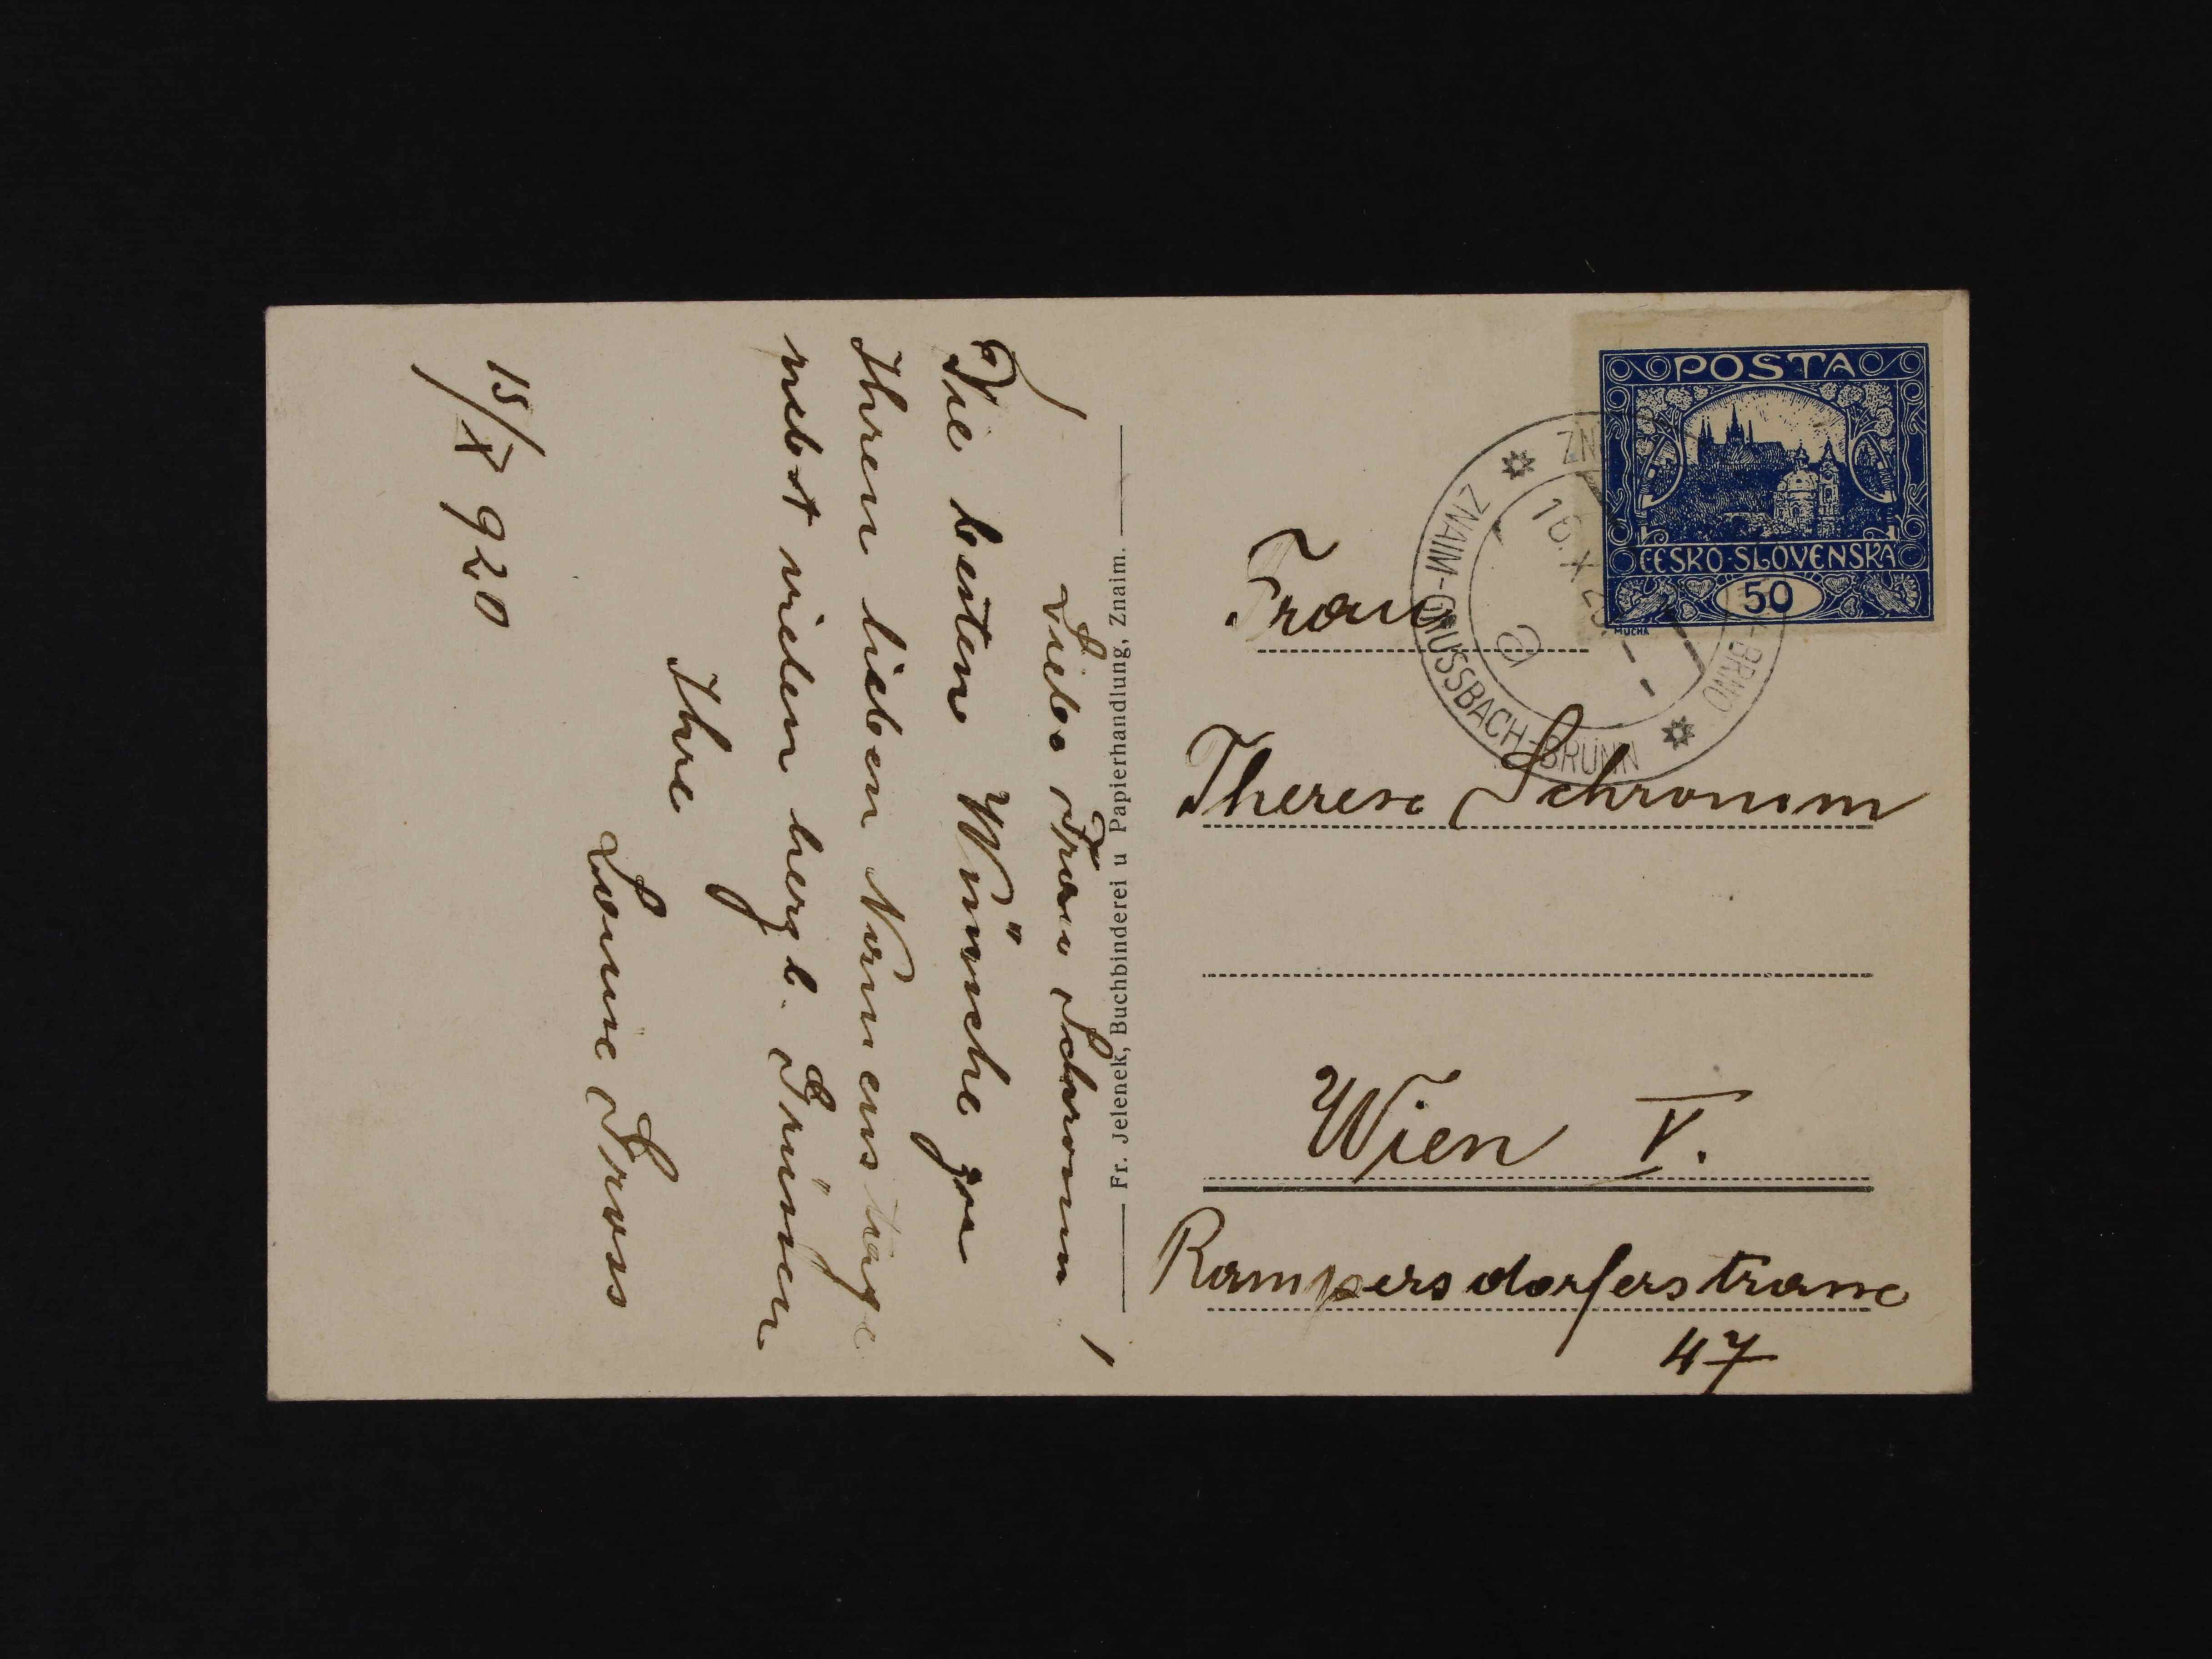 Liebe Frau Schramm
Die besten Wünsche zu
Ihren lieben Namenstage
nebst vielen herzl. Grüssen
Ihre
Louise Gross
15/X 920
Fr. Jelenek, Buchbinderei u Papierhandlung, Znaim.
POSTA
ČESKO-SLOVENSKÁ
50
MUCHA
ZNAIM-GRUSSBACH-BRÜNN
BRNO
16.X.20
a
Frau
Therese Schramm
Wien V.
Rampersdorferstrasse
47